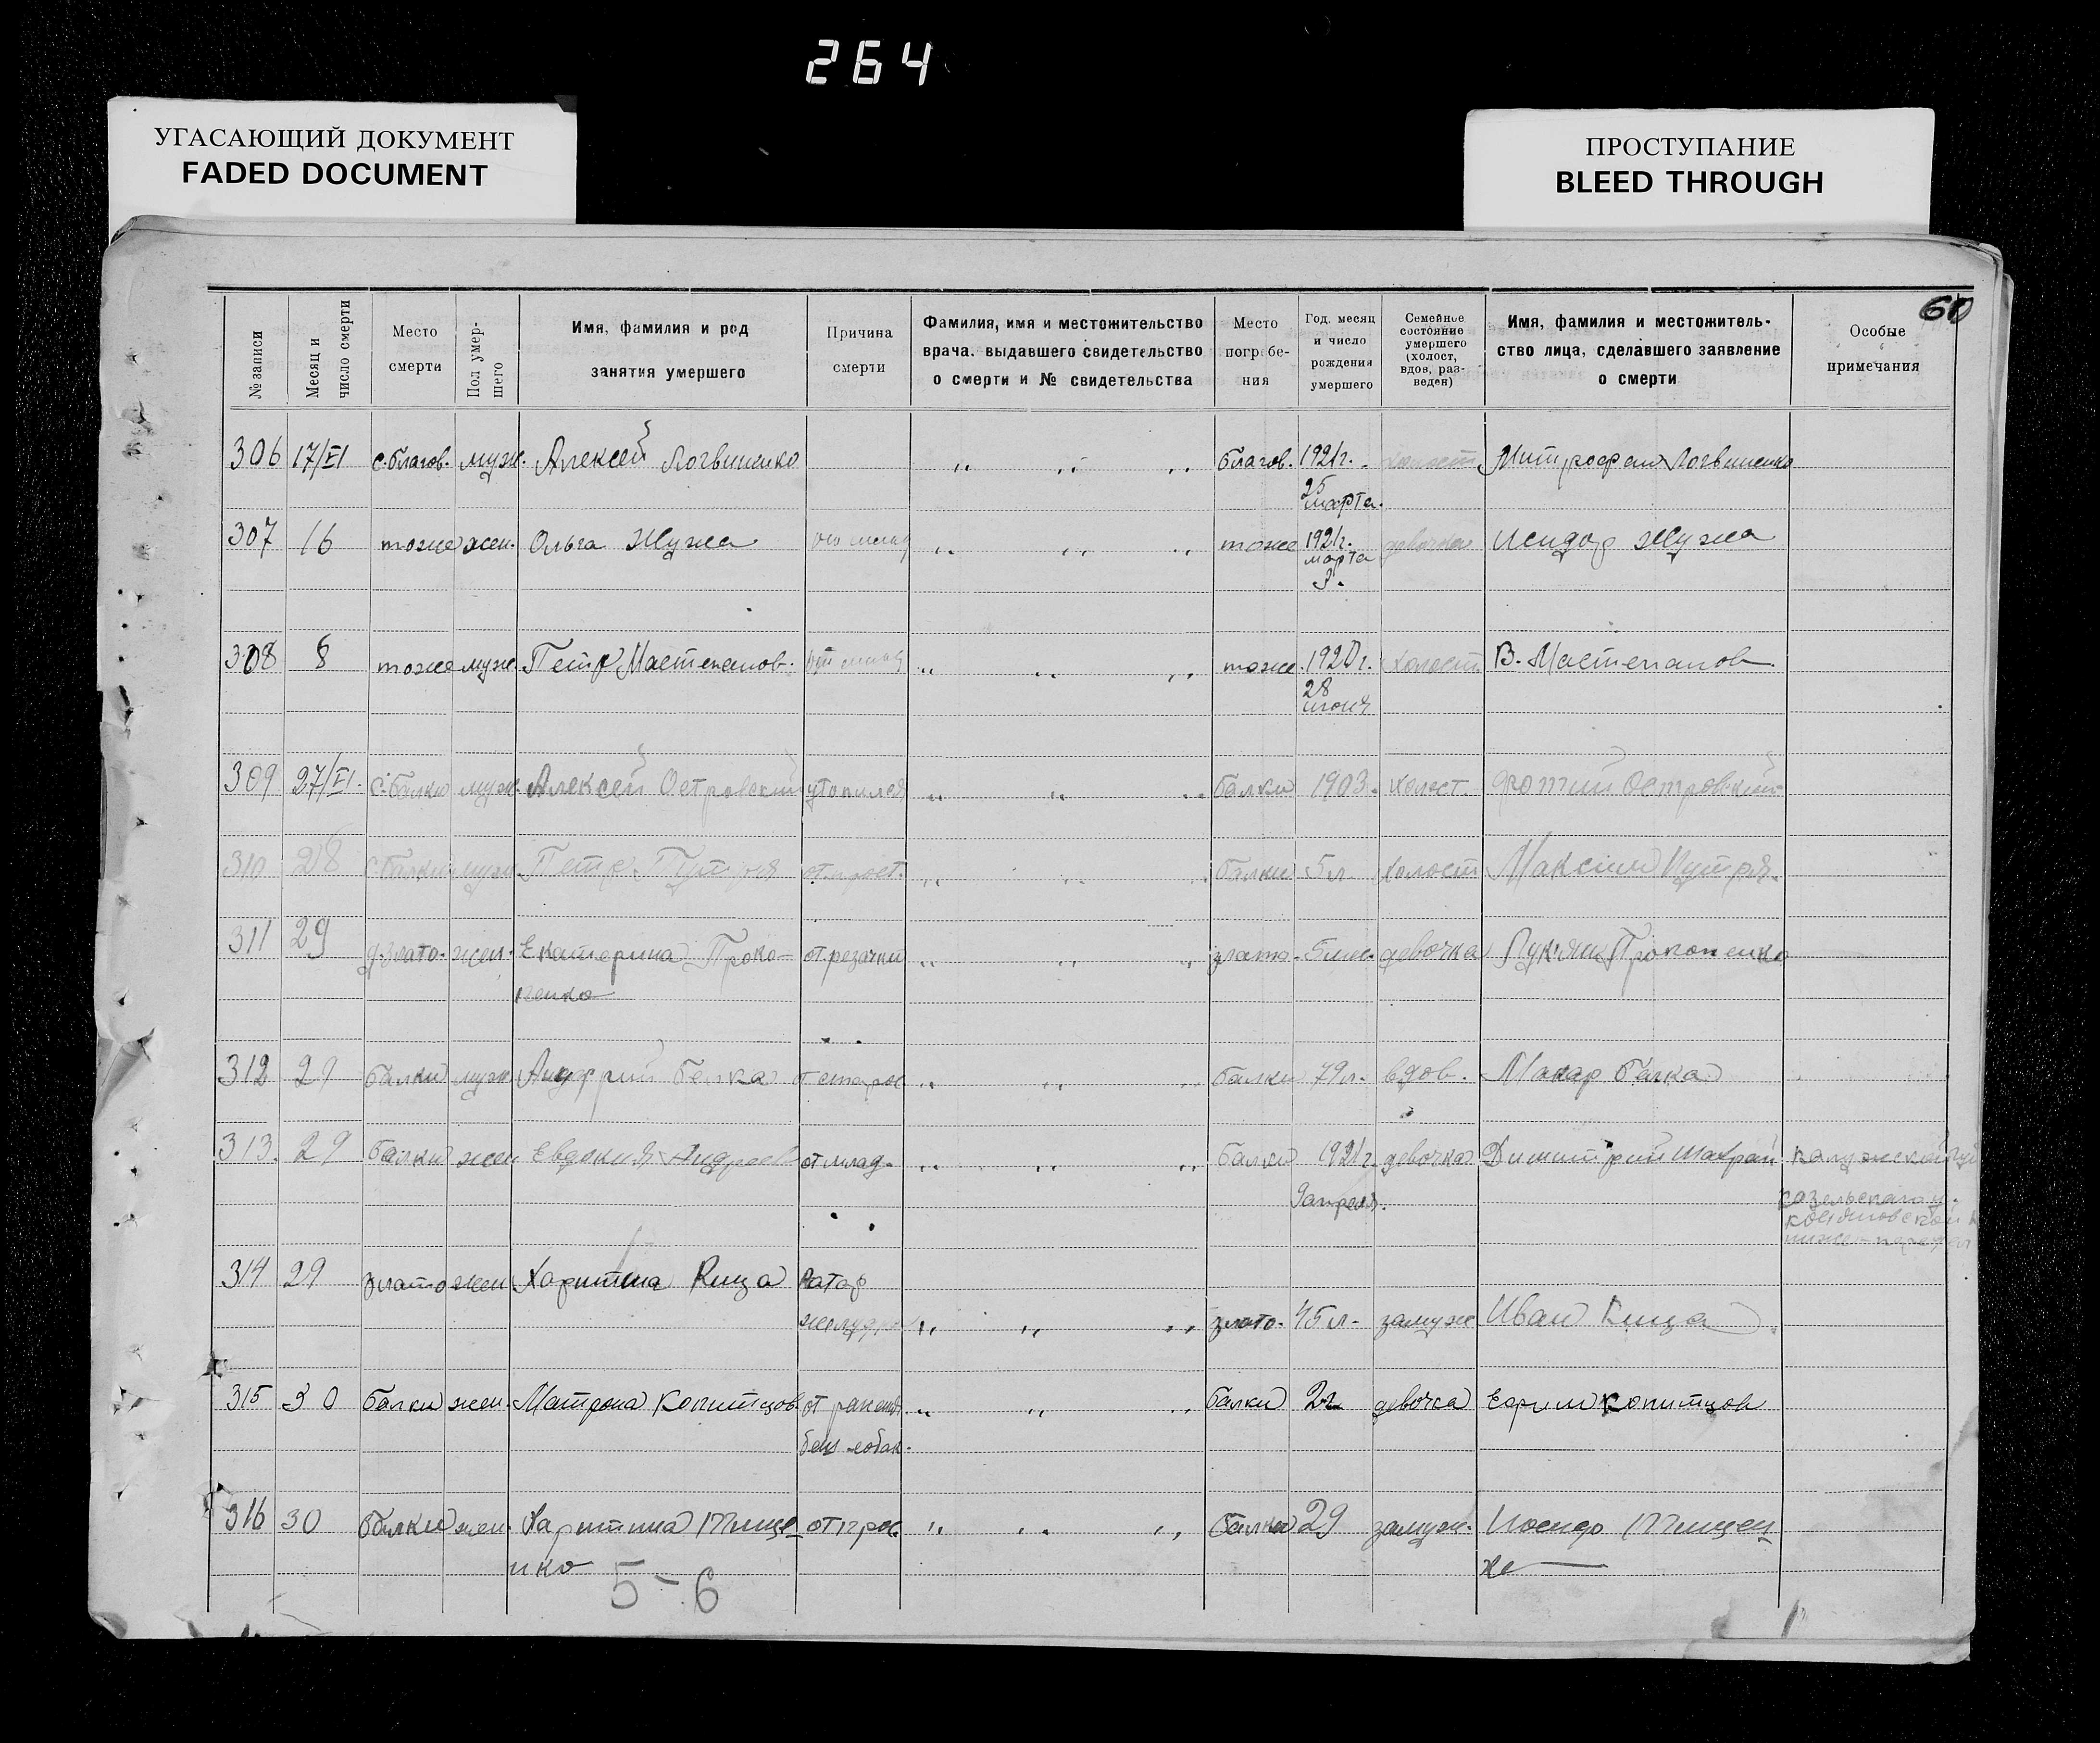 264
УГАСАЮЩИЙ ДОКУМЕНТ
FADED DOCUMENT
ПРОСТУПАНИЕ
BLEED THROUGH
60
№ записи
Месяц и число смерти
Место смерти
Пол умер-шего
Имя, фамилия и род занятия умершего
Причина смерти
Фамилия, имя и местожительство врача, выдавшего свидетельство о смерти и № свидетельства
Место погребе-ния
Год, месяц и число рождения умершего
Семейное состояние умершего (холост, вдов, раз-веден)
Имя, фамилия и местожитель-ство лица, сделавшего заявление о смерти
Особые примечания
306 17/VI с.благов. муж. Алексей Логвиненко ,, ,, ,, благов. 1921г. холост Митрофан Логвиненко
25
марта.
307 16 тоже жен. Ольга Жужа ,, ,, ,, тоже 1921г. девочка Исидор Жужа
марта
3.
308 8 тоже муж. Петр Мастепанов. ,, ,, ,, тоже. 1920г. холост В. Мастепанов.
28
июня
309 27/VI. с.Балки муж. Алексей Островский утопился ,, ,, ,, балки 1903. холост. Фотий Островский
310 28 с.Балки муж. Петр Путря ,, ,, ,, балки 5л. холост Максим Путря.
311 29 д.Злато. жен. Екатерина Проко- от резачки ,, ,, ,, злато. 5 девочка Лукъян Прокопенко
пенко
312 29 балки муж. Андрий Балка от старос ,, ,, ,, балки 79л. вдов. Макар Балка
313. 29 балки жен Евдокия от млад. ,, ,, ,, балки 1921г. девочка Димитрий Шахрай калужской губ
9 апреля.
козельскаго у.
314 29 злато жен Харитина Кица Катар
желудка ,, ,, ,, злато. 45л. замуж Иван Кица
315 30 балки жен. Матрона Копитцов от ранения ,, ,, ,, балки 2г. девочка Ефрим Копитцов
беш собак.
316 30 балки жен. Харитина Тище- ,, ,, ,, балки 29 замуж. Тищен
нко
ко
5-6